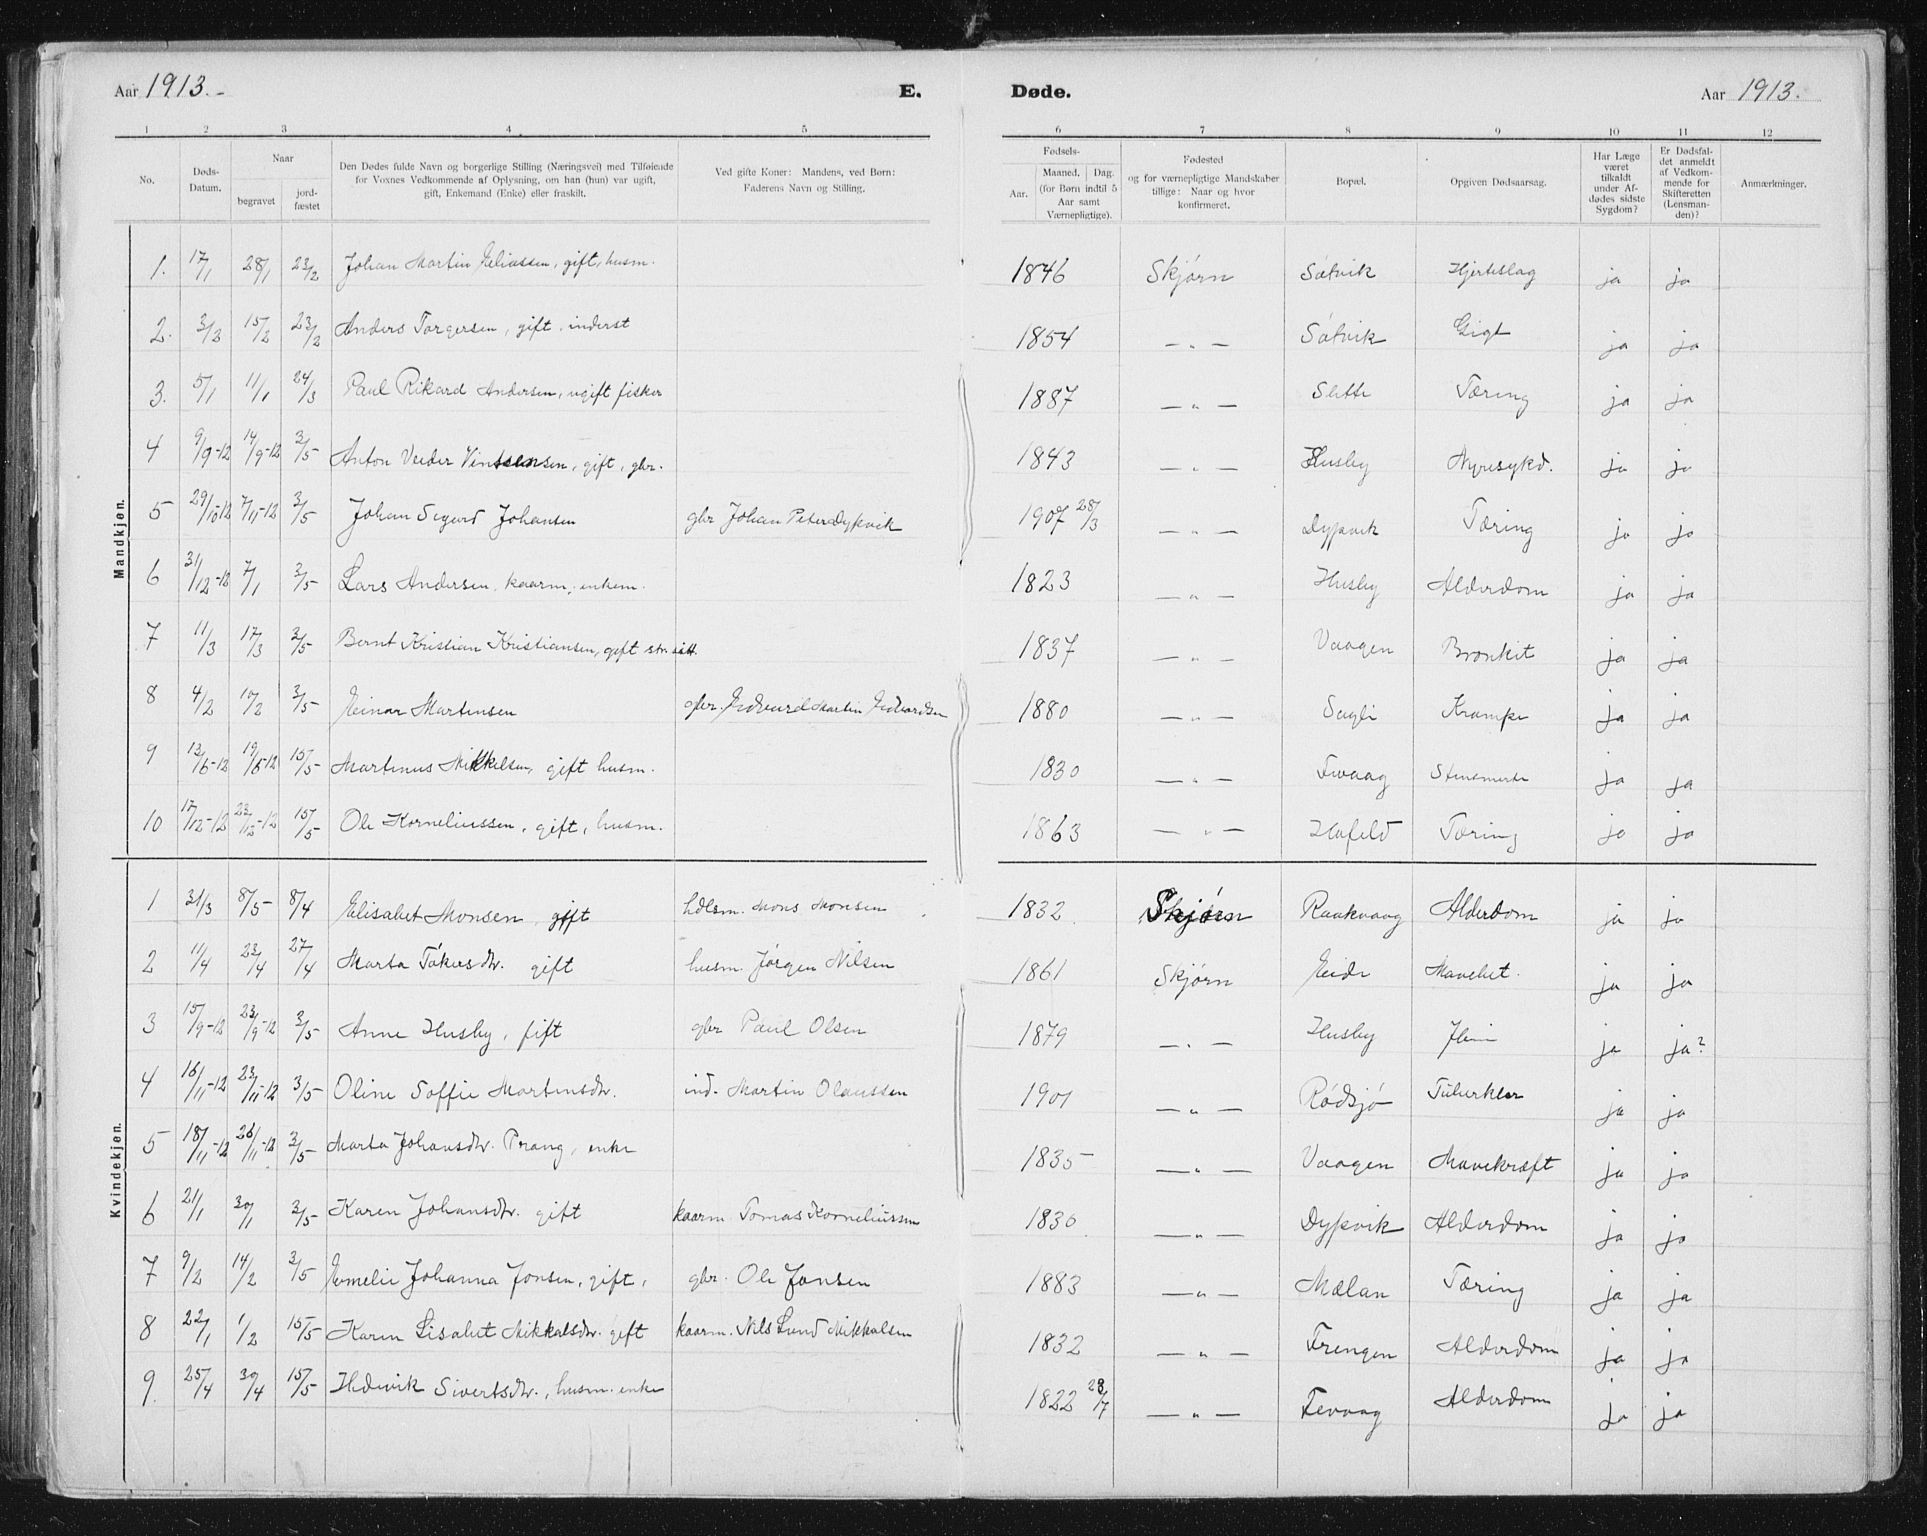 Aar 1913.
E.
Døde.
Aar 1913.
1 2 3 4 5 6 7 8 9 10 11 12
No.
Døds-Datum.
Naar
begravet
jord-fæstet
Den Dødes fulde Navn og borgerlige Stilling (Næringsvei) med Tilføiende
for Voxnes Vedkommende af Oplysning, om han (hun) var ugift,
gift, Enkemand (Enke) eller fraskilt.
Ved gifte Koner: Mandens, ved Børn:
Faderens Navn og Stilling.
Fødsels-
Aar.
Maaned. Dag.
(for Børn indtil 5
Aar samt
Værnepligtige).
Fødested
og for værnepligtige Mandskaber
tillige: Naar og hvor
konfirmeret.
Bopæl.
Opgiven Dødsaarsag.
Har Læge
været
tilkaldt
under Af-
dødes sidste
Sygdom?
Er Dødsfal-
det anmeldt
af Vedkom-
mende for
Skifteretten
(Lensman-
den)?
Anmærkninger.
Mandkjøn.
1. 17/1 28/1 23/2 Johan Martin Eeliassen, gift, husm. 1846 Skjörn Sötvik Hjerteslag ja ja
2. 3/2 15/2 23/2 Anders Torgersen, gift, inderst 1854 — " — Sötvik Gigt ja ja
3. 5/1 11/1 24/3 Paul Rikard Andersen, ugift fisker 1887 — " — Slette Tæring ja ja
4 9/9-12 14/9-12 3/5 Anton Veider Vintsensen, gift, gbr. 1843 — " — Husby Nyresykd. ja ja
5 29/10-12 7/11-12 3/5 Johan Sigurd Johansen gbr Johan Peter Dypvik 1907 28/3 — " — Dypvik Tæring ja ja
6 31/12-12 7/1 3/5 Lars Andersen, kaarm., enkem. 1823 — " — Husby Alderdom ja ja
7 11/3 17/3 3/5 Bernt Kristian Kristiansen, gift str. sitt. 1837 — " — Vaagen Bronkit ja ja
8 4/2 10/2 3/5 Einar Martinsen gbr. Edvard Martin Edvardsen 1880 — " — Sagli Krampe ja ja
9 13/6-12 19/6-12 15/5 Martinus Mikkelsen, gift husm. 1830 — " — Fevaag Stensmerte ja ja
10 17/12-12 23/12-12 15/5 Ole Korneliussen, gift, husm. 1863 — " — Hofeld Tæring ja ja
Kvindekjøn.
1 31/3 8/5 8/4 Elisabet Monsen, gift hdlsm. Mons Monsen 1832 Skjörn Raakvaag Alderdom ja ja
2 11/4 23/4 27/4 Marta Tökersdtr. gift husm. Jörgen Nilsen 1861 Skjörn Eide Mavebet. ja ja
3 15/9-12 23/9-12 3/5 Anne Husby, gift gbr Paul Olsen 1879 — " — Husby ja ja?
4 16/11-12 23/11-12 3/5 Oline Soffie Martinsdtr. ind. Martin Olaussen 1901 — " — Rödsjö Tuberkler ja ja
5 18/11-12 26/11-12 3/5 Marta Johansdtr. Prang, enke 1835 — " — Vaagen Mavekræft ja ja
6 21/1 30/1 3/5 Karen Johansdtr. gift kaarm. Tomas Korneliussen 1830 — " — Dypvik Alderdom ja ja
7 9/2 14/2 3/5 Emelie Johanna Jonsen, gift, gbr. Ole Jonsen 1883 — " — Mælan Tæring ja ja
8 22/1 1/2 15/5 Karen Lisabet Mikkalsdtr. gift kaarm. Nils Lund Mikkalsen 1832 — " — Frengen Alderdom ja ja
9. 25/4 30/4 15/5 Hedevik Sivertsdtr., husm. enke 1822 28/7 — " — Fevaag Alderdom ja ja